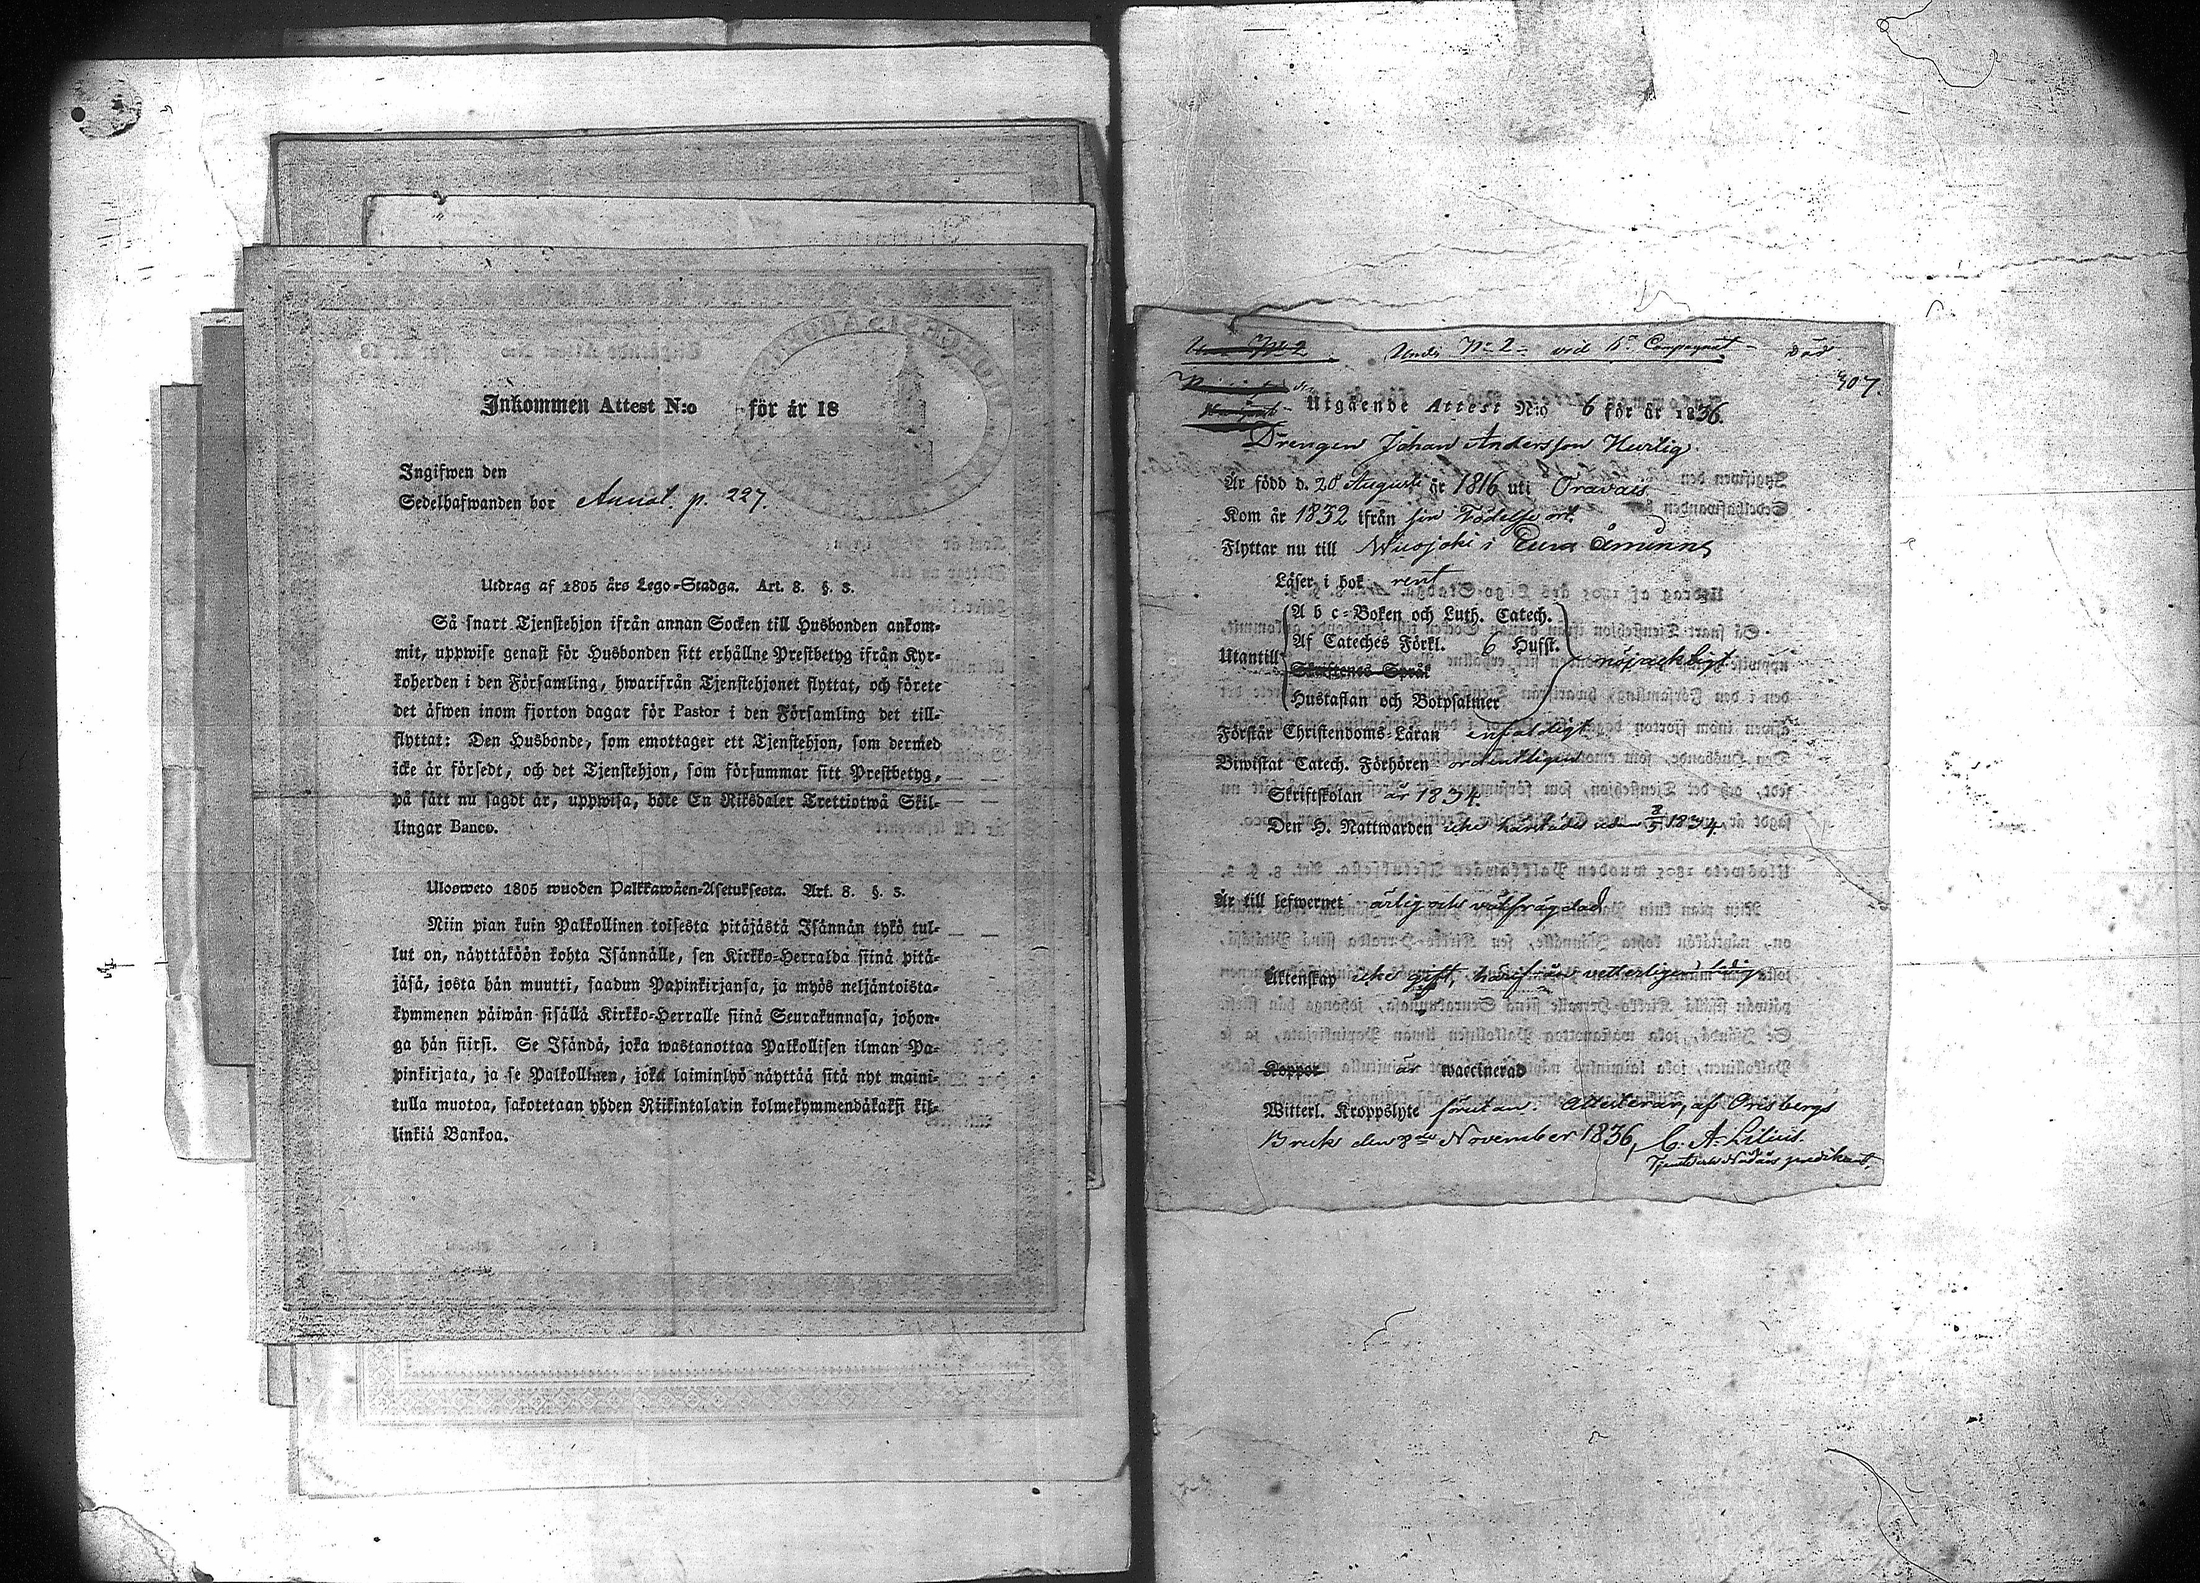 Inkommen Attest N:o för år 18
Ingifwen den
Sedelhafwanden bor Annot. p. 227.
Utdrag af 1805 års Lego-Stadga. Art. 8. §. 3.
Så snart Tjenstehjon ifrån annan Socken till Husbonden ankom-
mit, uppwise genast för Husbonden sitt erhållne Prestbetyg ifrån Kyr-
koherden i den Församling, hwarifrån Tjenstehjonet flyttat, och förete
det äfwen inom fjorton dagar för Pastor i den Församling det till-
flyttat: Den Husbonde, som emottager ett Tjenstehjon, som dermed
icke är försedt, och det Tjenstehjon, som försummar sitt Prestbetyg,
på sätt nu sagdt är, uppwisa, böte En Riksdaler Trettiotwå Skil-
lingar Banco.
Ulosweto 1805 wuoden Palkkawäen-Asetuksesta. Art. 8. §. 3.
Niin pian kuin Palkollinen toisesta pitäjästä Isännän tykö tul-
lut on, näyttäköön kohta Isännälle, sen Kirkko-Herralda siinä pitä-
jäsä, josta hän muutti, saadun Papinkirjansa, ja myös neljäntoista-
kymmenen päiwän sisällä Kirkko-Herralle siinä Seurakunnasa, johon-
ga hän siirsi. Se Isändä, joka wastanottaa Palkollisen ilman Pa-
pinkirjata, ja se Palkollinen, joka laiminlyö näyttää sitä nyt maini-
tulla muotoa, sakotetaan yhden Riikintalarin kolmekymmendäkaksi kil-
linkiä Bankoa.
Und: N:o 2 vid Compagnet
307.
Utgående Attest N:o 6 för år 1836.
Drengen Johan Andersson Hurtig.
Är född d. 20 Augusti år 1816 uti Oravais
Kom år 1832 ifrån sin Födelse ort.
Flyttar nu till Wuojoki i Eura Åminne
Läser i bok rent
A b c-Boken och Luth. Catech.
Af Cateches Förkl. 6 Hufst.
Utantill nöjachligt
Skriftenes Språk
Hustaflan och Botpsalmer
Förstår Christendoms-Läran enfaldigt
Biwistat Catech. Förhören ordentligen
Skriftskolan år 1834.
Den H. Nattwarden 1834
Är till lefwernet ärlig och välfrägdad
Äktenskap icke gift, vetterligen ledig
Koppor är waccinerad
Witterl. Kroppslyte förutan. Attesterar, af Orisbergs
Bruk den 8de November 1836, C. A. Lilius.
predikant.